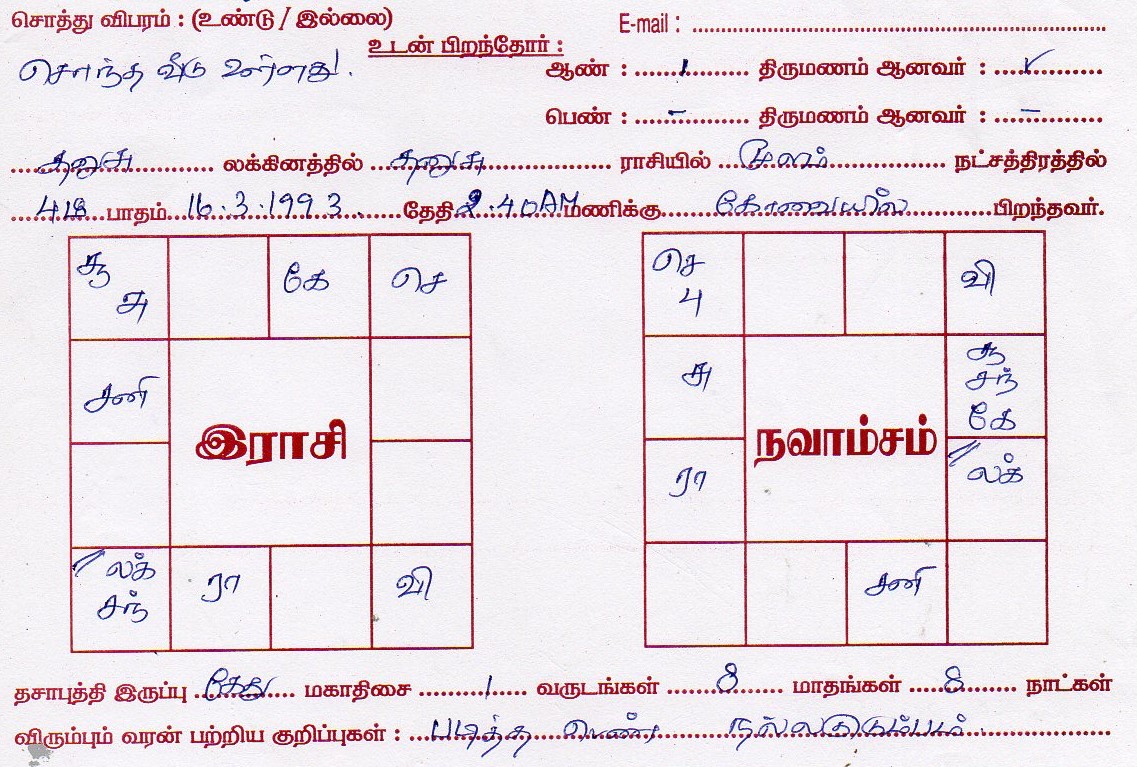 சொத்து விபரம் : (உண்டு / இல்லை)
E-mail :
உடன் பிறந்தோர் :
சொந்த வீடு உள்ளது.
ஆண் : 1 திருமணம் ஆனவர் : ✓
பெண் : - திருமணம் ஆனவர் : -
தனுசு லக்கினத்தில் தனுசு ராசியில் மூலம் நட்சத்திரத்தில்
பாதம் 16.3.1993 தேதி 2.40AM மணிக்கு கோவையில் பிறந்தவர்.
சூ
சு
கே
செ
சனி
இராசி
லக்
சந்
ரா
வி
செ
பு
வி
சு
சூ
சந்
கே
நவாம்சம்
ரா
லக்
சனி
தசாபுத்தி இருப்பு கேது மகாதிசை 1 வருடங்கள் 8 மாதங்கள் 8 நாட்கள்
விரும்பும் வரன் பற்றிய குறிப்புகள் : படித்த பெண் நல்லகுடும்பம்.